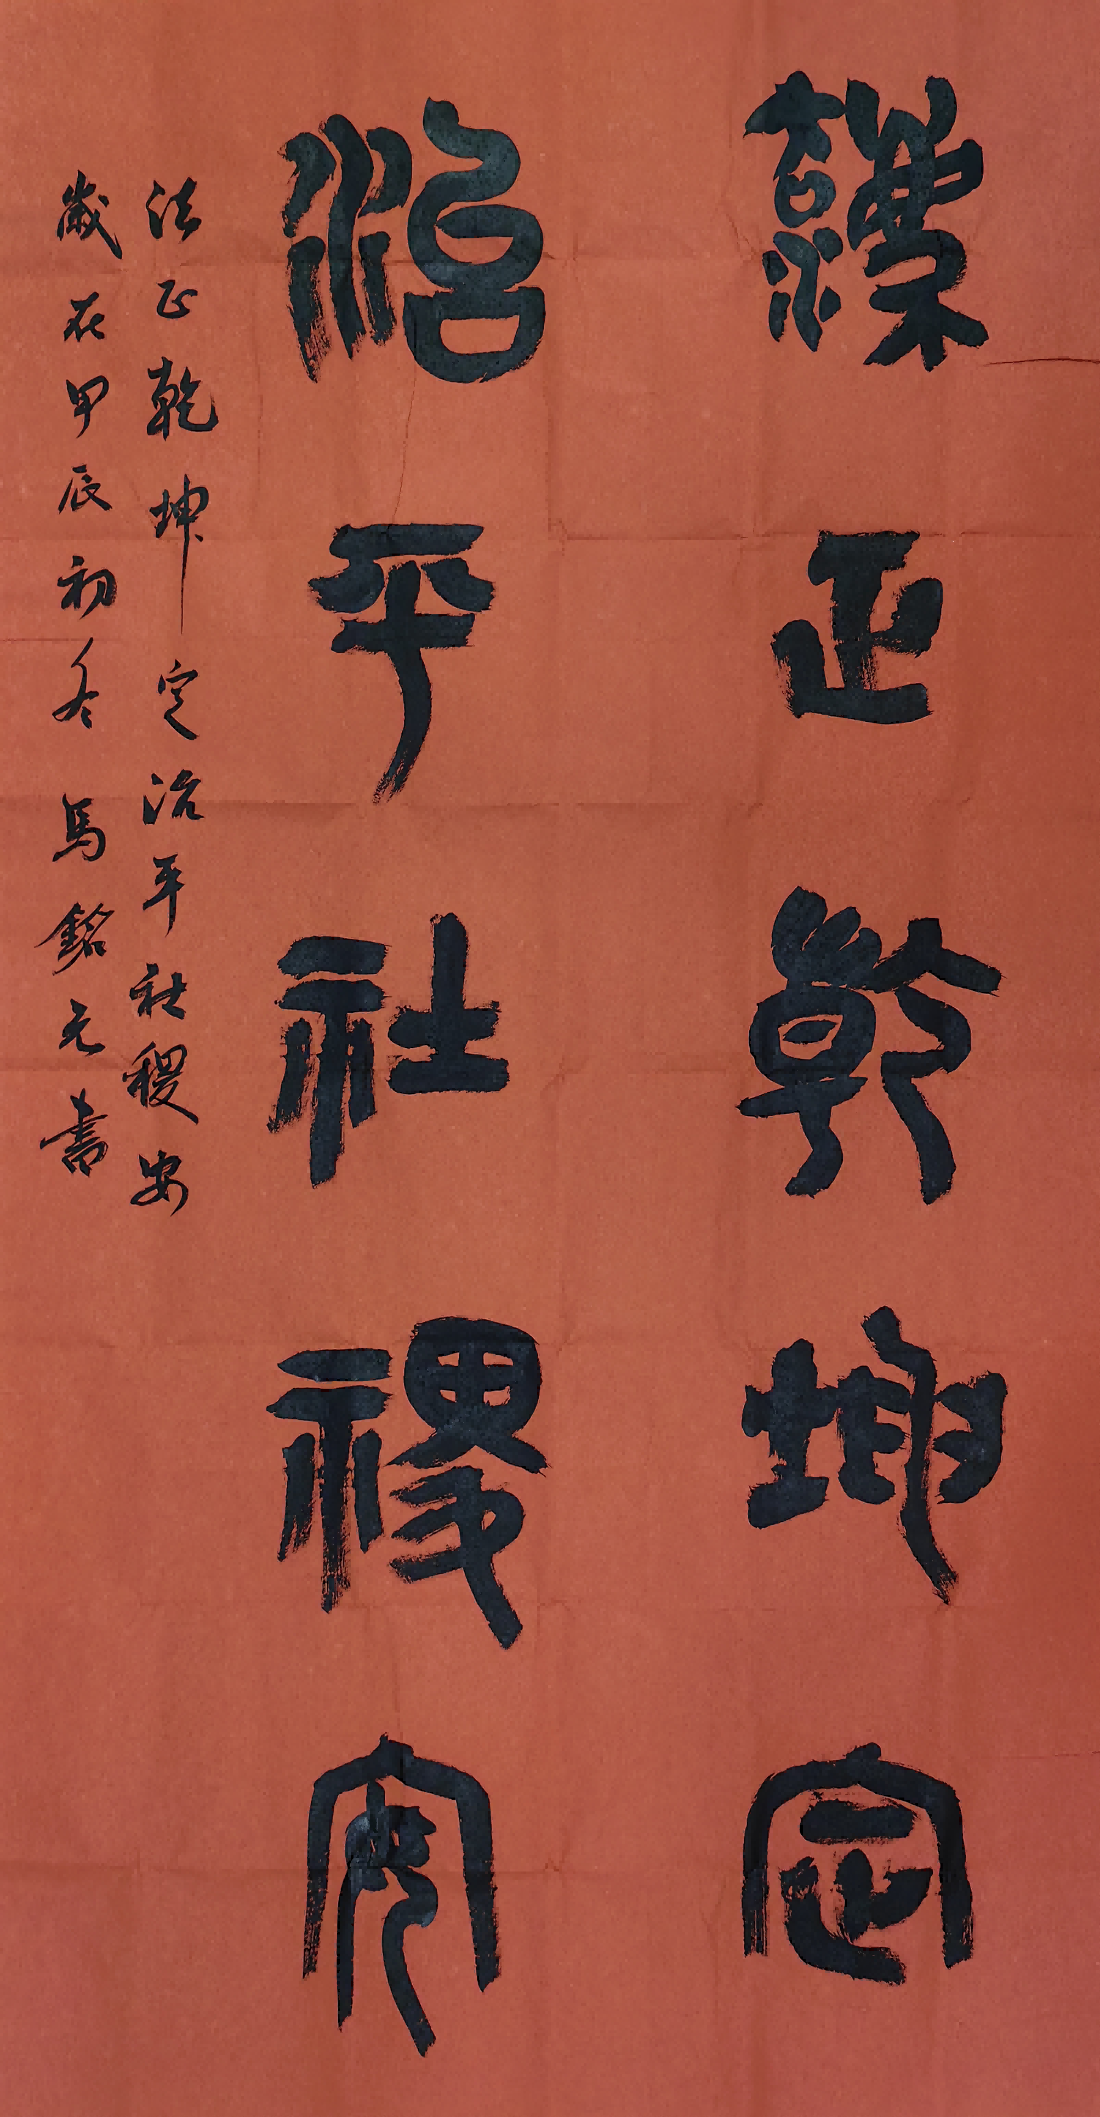 灋正乾坤定
治平社稷安
法正乾坤定治平社稷安
歲在甲辰初冬馬銘元書